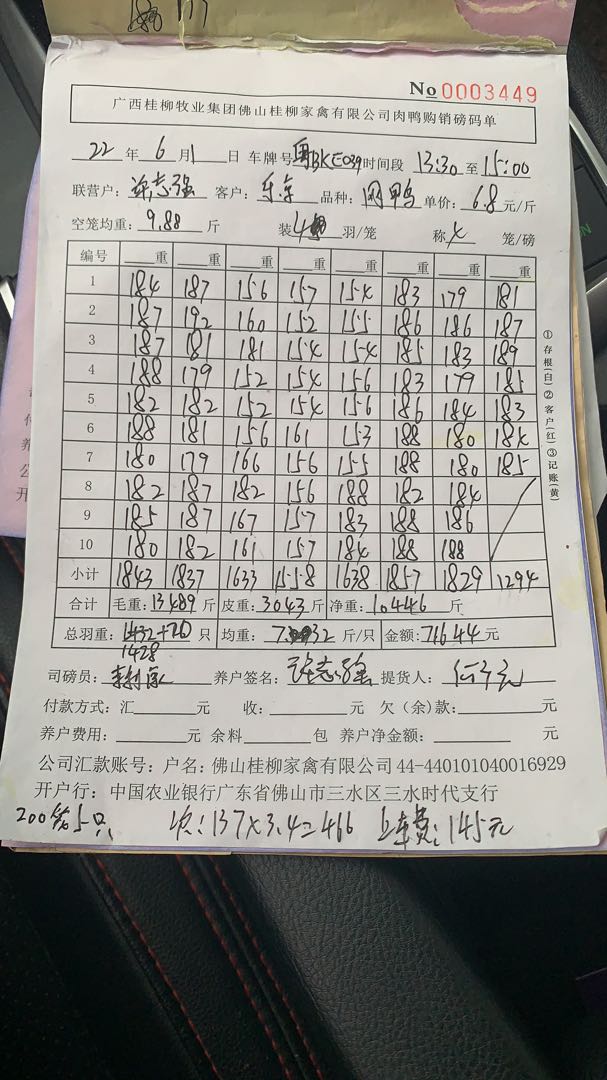 No 0003449
广西桂柳牧业集团佛山桂柳家禽有限公司肉鸭购销磅码单
22 年 6 月 1 日 车牌号 粤BKE039 时间段 13:30 至 15:00
联营户: 许志强 客户: 品种: 鸭 单价: 6.8 元/斤
空笼均重: 9.88 斤 装 4 羽/笼 称 笼/磅
编号 重 重 重 重 重 重 重 重
1 184 187 156 157 154 183 179 181
2 187 192 160 152 155 186 186 187
3 187 181 181 154 154 185 183 189
4 188 179 152 154 156 183 179 185
5 182 182 152 154 156 186 184 183
6 188 181 156 161 153 188 180 184
7 180 179 166 156 155 188 180 185
8 182 187 182 156 188 182 184
9 185 187 167 157 183 188 186
10 180 182 161 157 184 188 188
小计 1843 1837 1633 1558 1638 1857 1829 1294
合计 毛重: 13489 斤 皮重: 3043 斤 净重: 10446 斤
总羽重: 1432+20 只 均重: 7. 32 斤/只 金额: 71644 元
1428
司磅员: 养户签名: 许志强 提货人:
付款方式: 汇 元 收: 元 欠(余)款: 元
养户费用: 元 余料 包 养户净金额: 元
公司汇款账号: 户名: 佛山桂柳家禽有限公司 44-440101040016929
开户行: 中国农业银行广东省佛山市三水区三水时代支行
200笼5只 : 137×3.4=466 上车费: 145元
①存根(白)②客户(红)③记账(黄)